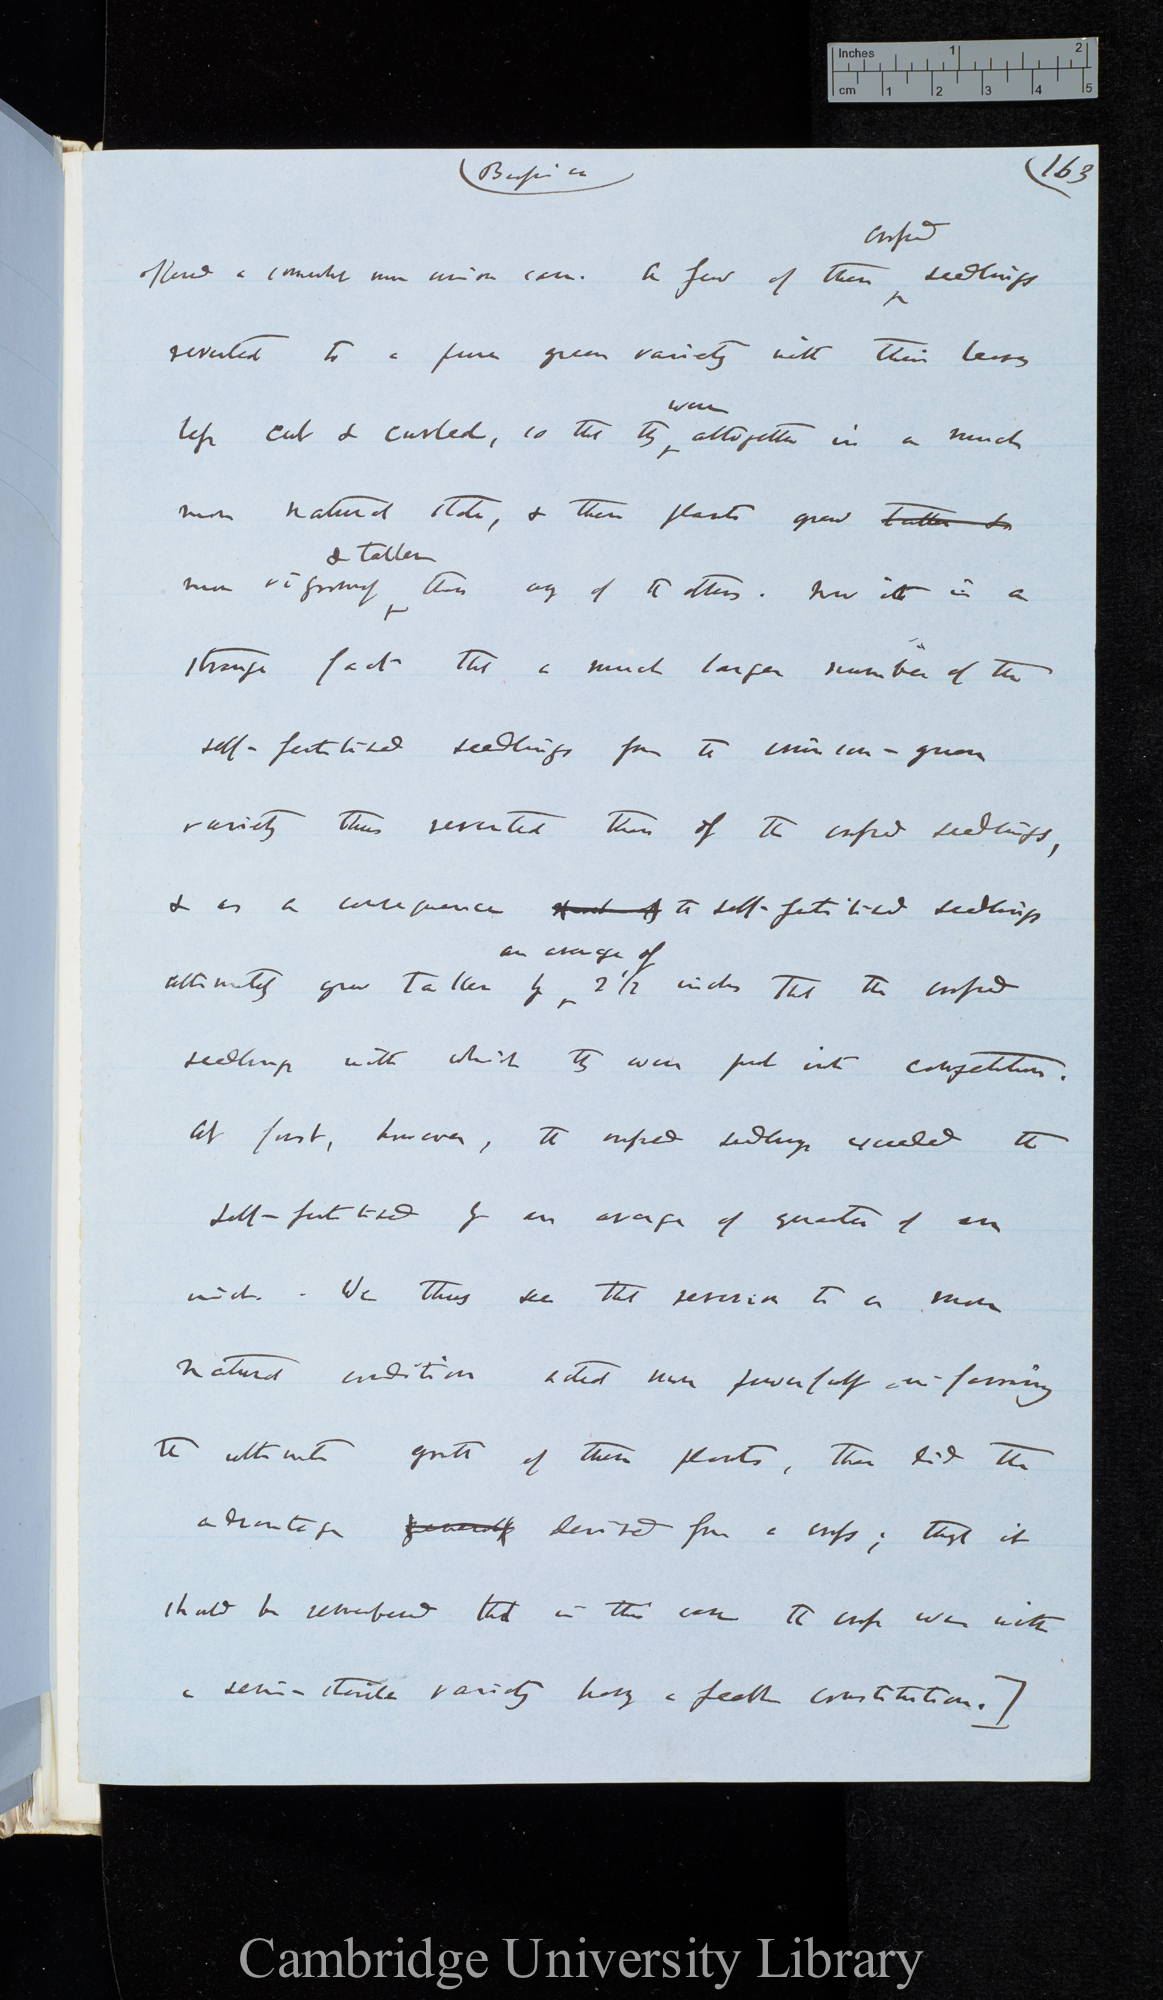 Inches 1 2
cm 1 2 3 4 5
(Brassica
(163
crossed
offered a somewhat more curious case. A few of these seedlings
reverted to a pure green variety with their leaves
less cut & curled, so that they were altogether in a much
more natural state, & these plants grew taller &
more vigorously & taller than any of the others. Now it is a
strange fact that a much larger number of the
self-fertilised seedlings from the crimson-green
variety thus reverted than of the crossed seedlings,
& as a consequence the self-fertilised seedlings
ultimately grew taller by an average of 2 1/2 inches that the crossed
seedlings with which they were put into competition.
At first, however, the crossed seedlings exceeded the
self-fertilised by an average of quarter of an
inch. - We thus see that reversion to a more
natural condition acted more powerfully in favouring
the ultimate growth of these plants, than did the
advantage generally derived from a cross; though it
should be remembered that in this case the cross was with
a semi-sterile variety having a feeble constitution.]
Cambridge University Library